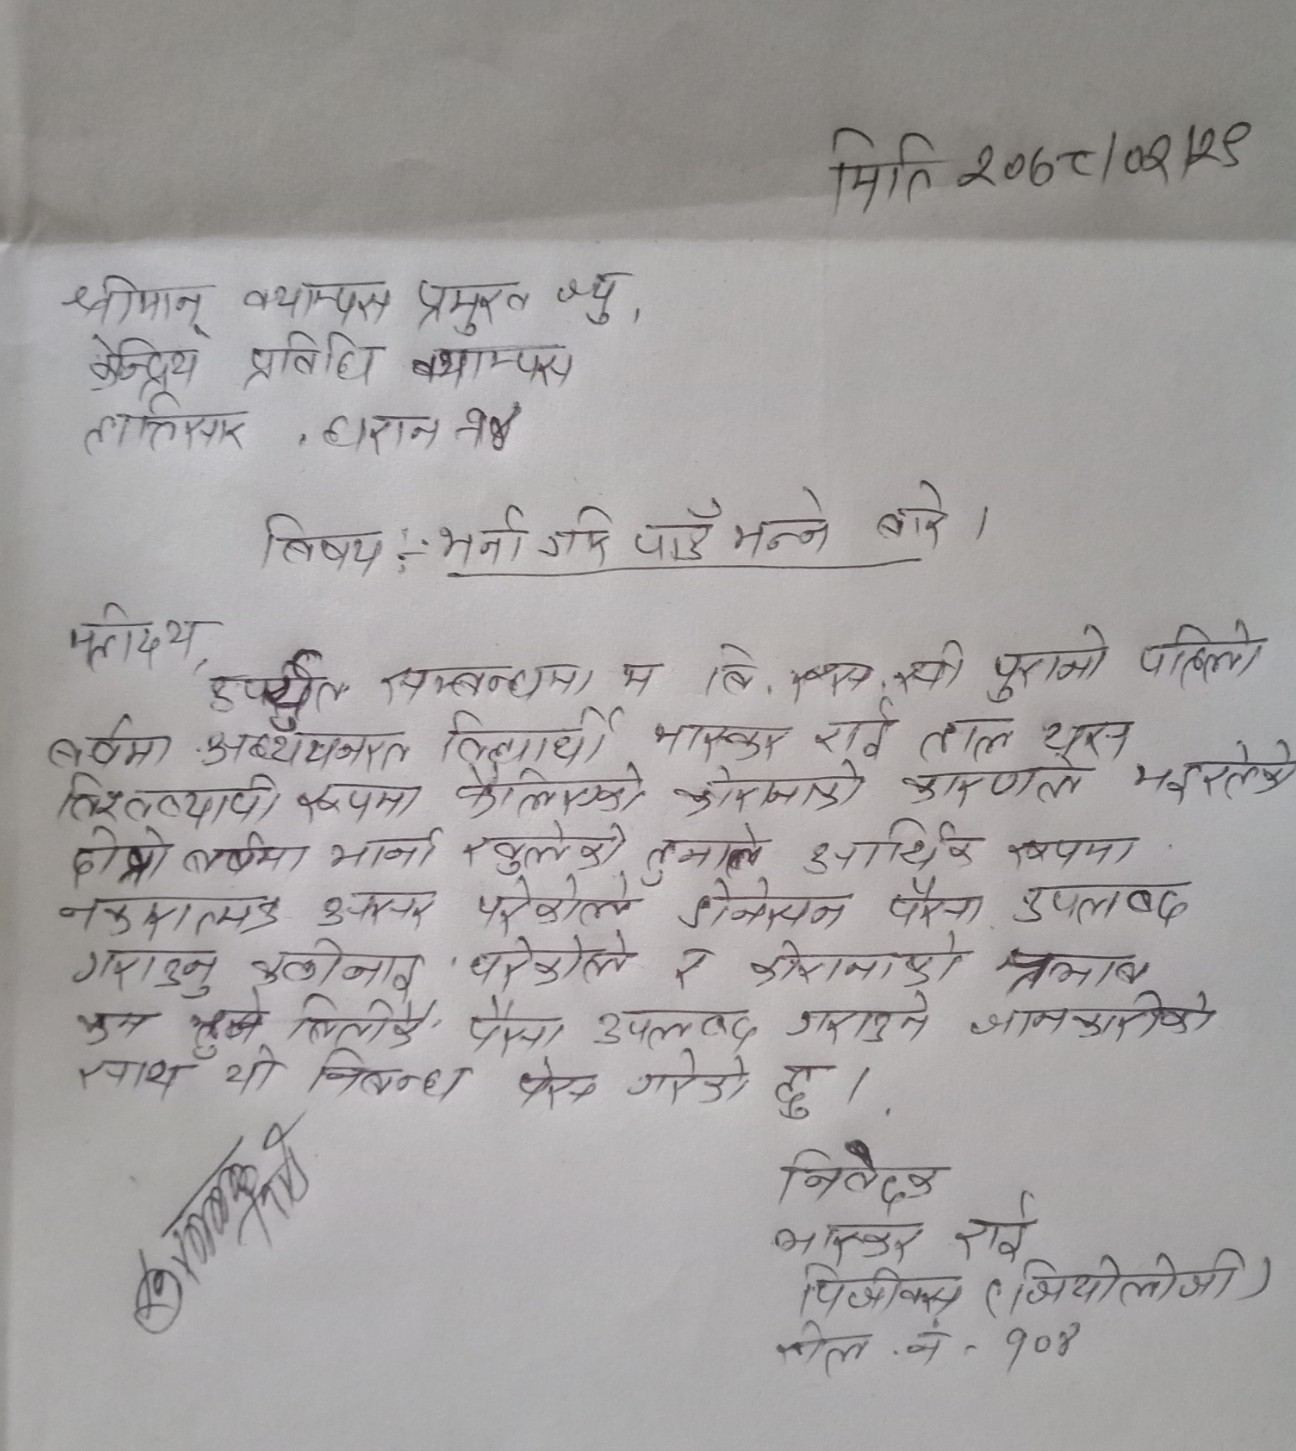 मिति २०७८/०२/२९
श्रीमान् क्याम्पस प्रमुख ज्यु,
केन्द्रिय प्रविधि क्याम्पस
हात्तिसार , धरान १४
बिषय :- भर्ना गरि पाउँ भन्ने बारे ।
महोदय,
उपर्युक्त सम्बन्धमा म बि. एस. सी पुरानो पहिलो
बर्षमा अध्ययनरत विद्यार्थी भास्कर राई हाल यस
विश्वव्यापी रूपमा फैलिएको कोरोनाको कारणले भइरहेको
दोश्रो बर्षमा भार्ना खुलेको हुनाले आर्थिक रूपमा
नकारात्मक असर परेकोले डोनेसन पैसा उपलब्द
गराउनु कठीनाइ परेकोले र कोरानाको प्रभाब
कम हुने वितीकै पैसा उपलब्द गराउने जानकारीको
साथ यो निबन्ध पेस गरेको छु ।
निवेदक
भास्कर राई
पिजीक्स (जियोलोजी)
रोल . नं - १०४